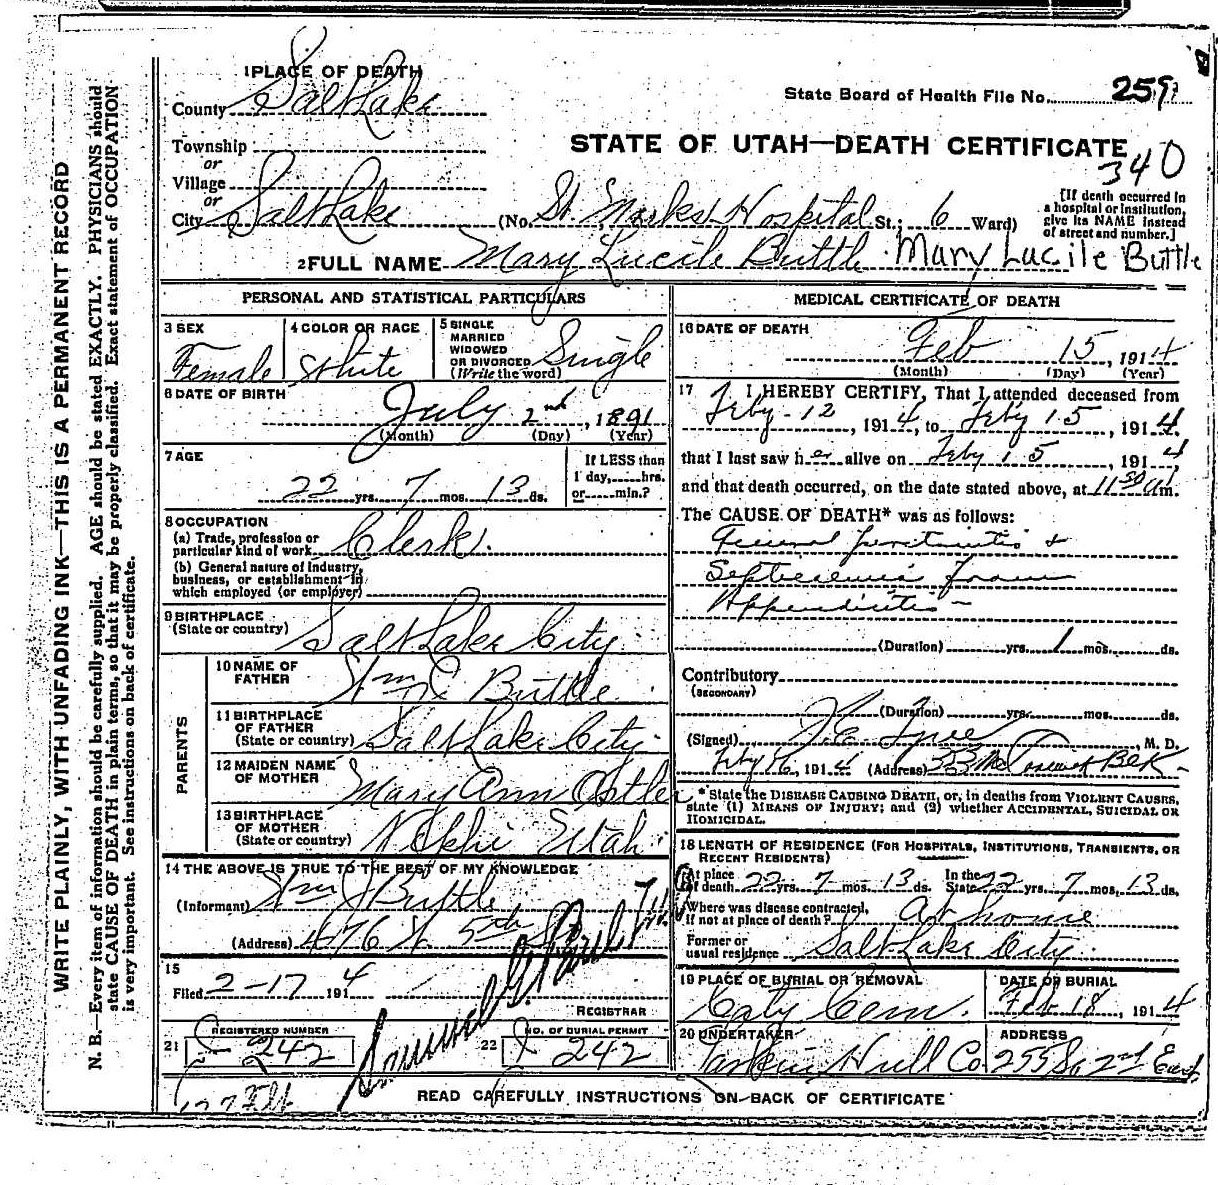 1 PLACE OF DEATH
County Salt Lake
State Board of Health File No. 259
Township
STATE OF UTAH—DEATH CERTIFICATE
340
or
Village
or
City Salt Lake (No. St. Marks Hospital St.; 6 Ward)
[If death occurred in
a hospital or institution,
give its NAME instead
of street and number.]
2 FULL NAME Mary Lucile Buttle Mary Lucile Buttle
PERSONAL AND STATISTICAL PARTICULARS
3 SEX
Female
4 COLOR OR RACE
White
5 SINGLE
MARRIED
WIDOWED
OR DIVORCED
(Write the word)
Single
6 DATE OF BIRTH
July 2nd, 1891
(Month) (Day) (Year)
7 AGE
22 yrs. 7 mos. 13 ds.
If LESS than
1 day, hrs.
or min.?
8 OCCUPATION
(a) Trade, profession or
particular kind of work Clerk.
(b) General nature of industry,
business, or establishment in
which employed (or employer)
9 BIRTHPLACE
(State or country) Salt Lake City.
PARENTS
10 NAME OF
FATHER Wm Buttle
11 BIRTHPLACE
OF FATHER
(State or country) Salt Lake City.
12 MAIDEN NAME
OF MOTHER Mary Ann Ostler
13 BIRTHPLACE
OF MOTHER
(State or country) Nephi Utah.
14 THE ABOVE IS TRUE TO THE BEST OF MY KNOWLEDGE
(Informant) Wm J Buttle
(Address) 476 W. 5th
15
Filed 2-17 1914
REGISTRAR
21 REGISTERED NUMBER
242
22 NO. OF BURIAL PERMIT
242
MEDICAL CERTIFICATE OF DEATH
16 DATE OF DEATH
Feb 15, 1914
(Month) (Day) (Year)
17 I HEREBY CERTIFY, That I attended deceased from
Feby-12, 1914, to Feby 15, 1914.
that I last saw her alive on Feby 15, 1914,
and that death occurred, on the date stated above, at 11 30 am.
The CAUSE OF DEATH* was as follows:
General peritonitis &
Septicemia from
Appendicitis-
(Duration) yrs. 1 mos. ds.
Contributory
(SECONDARY)
(Duration) yrs. mos. ds.
(Signed) J.E. Tyree, M. D.
Feby 16, 1914 (Address)
* State the DISEASE CAUSING DEATH, or, in deaths from VIOLENT CAUSES,
state (1) MEANS OF INJURY; and (2) whether ACCIDENTAL, SUICIDAL OR
HOMICIDAL.
18 LENGTH OF RESIDENCE (FOR HOSPITALS, INSTITUTIONS, TRANSIENTS, OR
RECENT RESIDENTS)
At place
of death 22 yrs. 7 mos. 13 ds.
In the
State 22 yrs. 7 mos. 13 ds.
Where was disease contracted,
if not at place of death? At home
Former or
usual residence Salt Lake City.
19 PLACE OF BURIAL OR REMOVAL
City Cem.
DATE OF BURIAL
Feb 18, 1914
20 UNDERTAKER
Hull Co.
ADDRESS
255 So 2nd East.
READ CAREFULLY INSTRUCTIONS ON BACK OF CERTIFICATE
WRITE PLAINLY, WITH UNFADING INK—THIS IS A PERMANENT RECORD
N. B.—Every item of information should be carefully supplied. AGE should be stated EXACTLY. PHYSICIANS should
state CAUSE OF DEATH in plain terms, so that it may be properly classified. Exact statement of OCCUPATION
is very important. See instructions on back of certificate.